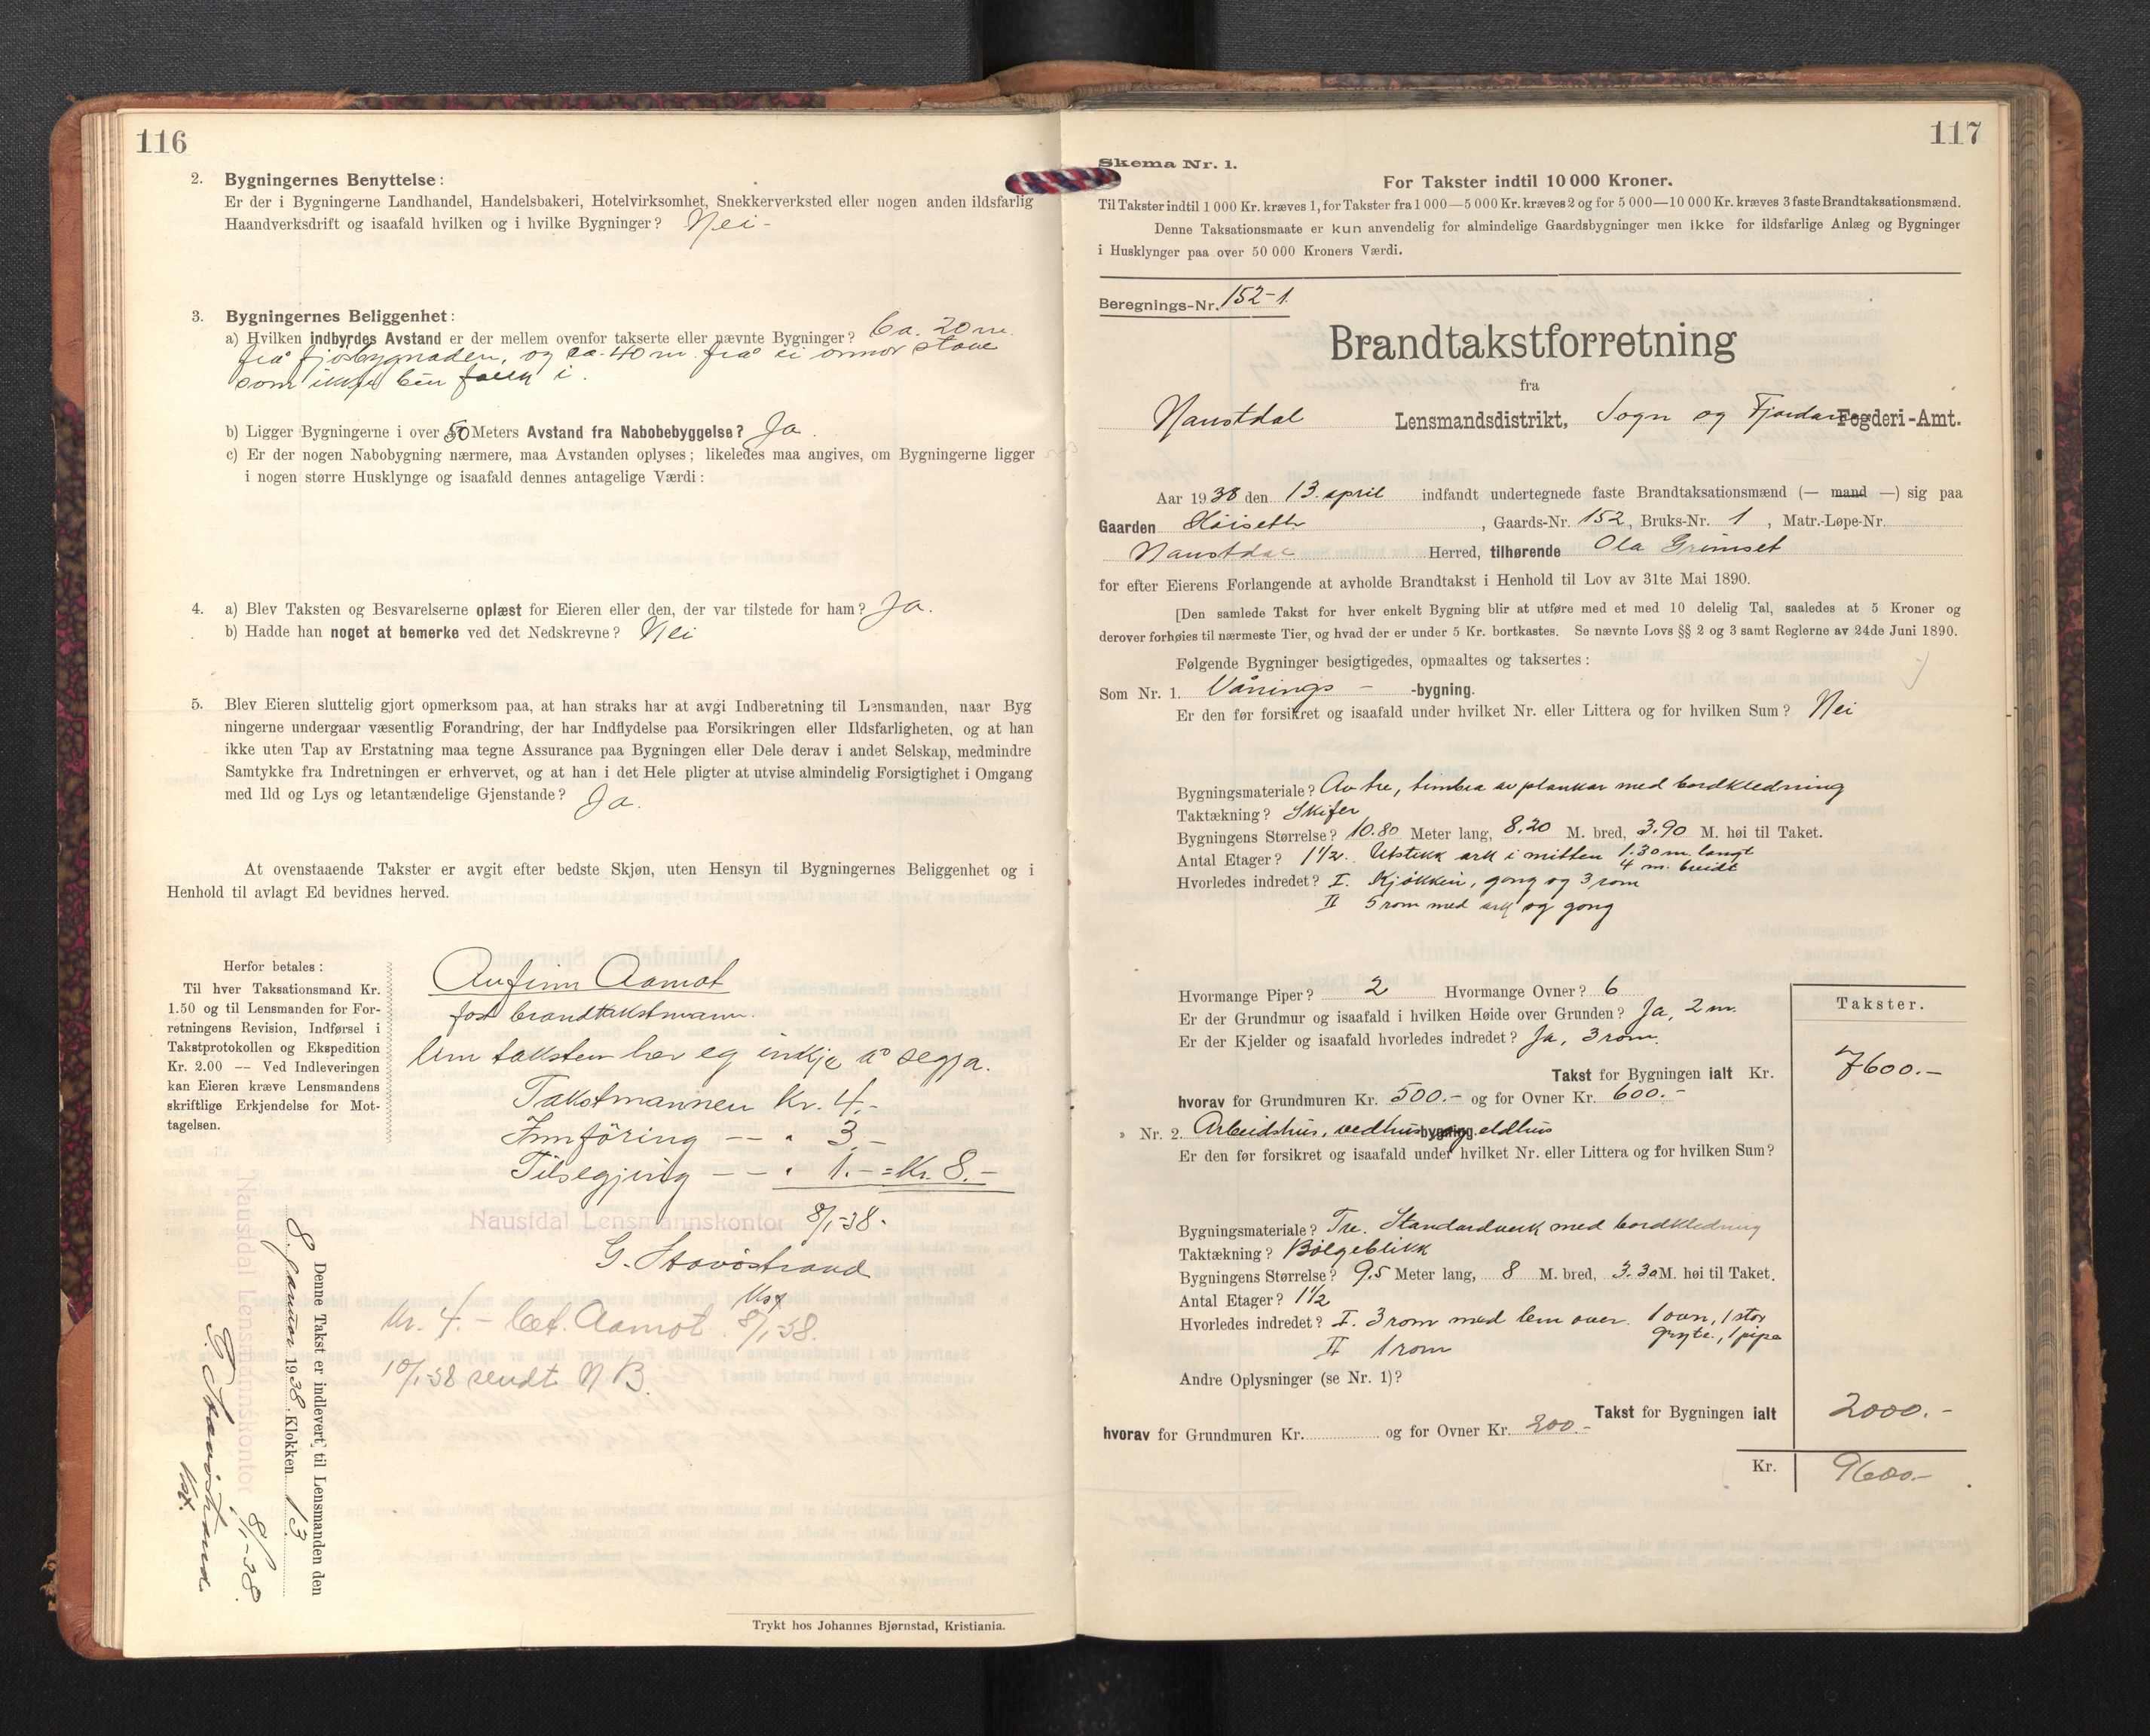 116
2. Bygningernes Benyttelse:
Er der i Bygningerne Landhandel, Handelsbakeri, Hotelvirksomhet, Snekkerverksted eller nogen anden ildsfarlig
Haandverksdrift og isaafald hvilken og i hvilke Bygninger? Nei -
3. Bygningernes Beliggenhet:
a) Hvilken indbyrdes Avstand er der mellem ovenfor takserte eller nævnte Bygninger? Ca. 20 m.
frå fjøsbygnaden, og ca. 40 m. frå ei onnor stove
som ikkje bur folk i.
b) Ligger Bygningerne i over 50 Meters Avstand fra Nabobebyggelse? Ja.
c) Er der nogen Nabobygning nærmere, maa Avstanden oplyses; likeledes maa angives, om Bygningerne ligger
i nogen større Husklynge og isaafald dennes antagelige Værdi:
4. a) Blev Taksten og Besvarelserne oplæst for Eieren eller den, der var tilstede for ham? Ja.
b) Hadde han noget at bemerke ved det Nedskrevne? Nei
5. Blev Eieren sluttelig gjort opmerksom paa, at han straks har at avgi Indberetning til Lensmanden, naar Byg
ningerne undergaar væsentlig Forandring, der har Indflydelse paa Forsikringen eller Ildsfarligheten, og at han
ikke uten Tap av Erstatning maa tegne Assurance paa Bygningen eller Dele derav i andet Selskap, medmindre
Samtykke fra Indretningen er erhvervet, og at han i det Hele pligter at utvise almindelig Forsigtighet i Omgang
med Ild og Lys og letantændelige Gjenstande? Ja.
At ovenstaaende Takster er avgit efter bedste Skjøn, uten Hensyn til Bygningernes Beliggenhet og i
Henhold til avlagt Ed bevidnes herved.
Herfor betales:
Til hver Taksationsmand Kr.
1.50 og til Lensmanden for For-
retningens Revision, Indførsel i
Takstprotokollen og Ekspedition
Kr. 2.00 — Ved Indleveringen
kan Eieren kræve Lensmandens
skriftlige Erkjendelse for Mot-
tagelsen.
Anfinn Aamot
fast brandtakstmann.
Um taksten her eg inkje å segja.
Takstmannen Kr. 4.-
Innføring -- " 3.-
Tilsegjing -- " 1.- = Kr. 8.-
Naustdal Lensmannskontor 8/1-38.
G. Stavøstrand
Kst
Kr. 4.- bet. Aamot 8/1-38.
10/1-38 sendt N B.
Denne Takst er indlevert til Lensmanden den
8. januar 1938, Klokken 13
Naustdal Lensmannskontor 8/1-38.
G. Stavøstrand
Kst.
Trykt hos Johannes Bjørnstad, Kristiania.
117
Skema Nr. 1.
For Takster indtil 10 000 Kroner.
Til Takster indtil 1 000 Kr. kræves 1, for Takster fra 1 000—5 000 Kr. kræves 2 og for 5 000—10 000 Kr. kræves 3 faste Brandtaksationsmænd.
Denne Taksationsmaate er kun anvendelig for almindelige Gaardsbygninger men ikke for ildsfarlige Anlæg og Bygninger
i Husklynger paa over 50 000 Kroners Værdi.
Beregnings-Nr. 152-1
Brandtakstforretning
fra
Naustdal Lensmandsdistrikt, Sogn og Fjordane Fogderi-Amt.
Aar 1938 den 13. april indfandt undertegnede faste Brandtaksationsmænd (— mand —) sig paa
Gaarden Høiseth, Gaards-Nr. 152, Bruks-Nr. 1, Matr.-Løpe-Nr.
Naustdal Herred, tilhørende Ola Grimset
for efter Eierens Forlangende at avholde Brandtakst i Henhold til Lov av 31te Mai 1890.
[Den samlede Takst for hver enkelt Bygning blir at utføre med et med 10 delelig Tal, saaledes at 5 Kroner og
derover forhøies til nærmeste Tier, og hvad der er under 5 Kr. bortkastes. Se nævnte Lovs §§ 2 og 3 samt Reglerne av 24de Juni 1890.
Følgende Bygninger besigtigedes, opmaaltes og taksertes:
Som Nr. 1. Vånings - -bygning.
Er den før forsikret og isaafald under hvilket Nr. eller Littera og for hvilken Sum? Nei
Bygningsmateriale? Av tre, timbra av plankar med bordkledning
Taktækning? Skifer
Bygningens Størrelse? 10.80 Meter lang, 8.20 M. bred, 3.90 M. høi til Taket.
Antal Etager? 1 1/2. Utstikk ark i mitten 1.30 m. langt
4 m. breidt
Hvorledes indredet? I. Kjøkken, gong og 3 rom
II 5 rom med ark og gong
Hvormange Piper? 2 Hvormange Ovner? 6
Er der Grundmur og isaafald i hvilken Høide over Grunden? Ja, 2 m.
Er der Kjelder og isaafald hvorledes indredet? Ja, 3 rom.
Takster.
Takst for Bygningen ialt Kr. 7600.-
hvorav for Grundmuren Kr. 500.- og for Ovner Kr. 600.-
Nr. 2. Arbeidshus, vedhus og eldhus bygning.
Er den før forsikret og isaafald under hvilket Nr. eller Littera og for hvilken Sum?
Bygningsmateriale? Tre. Standardverk med bordkledning
Taktækning? Bølgeblikk
Bygningens Størrelse? 9.5 Meter lang, 8 M. bred, 3.30 M. høi til Taket.
Antal Etager? 1 1/2
Hvorledes indredet? I. 3 rom med lem over. 1 ovn, 1 stor
gryte, 1 pipe
II 1 rom
Andre Oplysninger (se Nr. 1)?
Takst for Bygningen ialt 2000.-
hvorav for Grundmuren Kr. og for Ovner Kr. 200.-
Kr. 9600.-